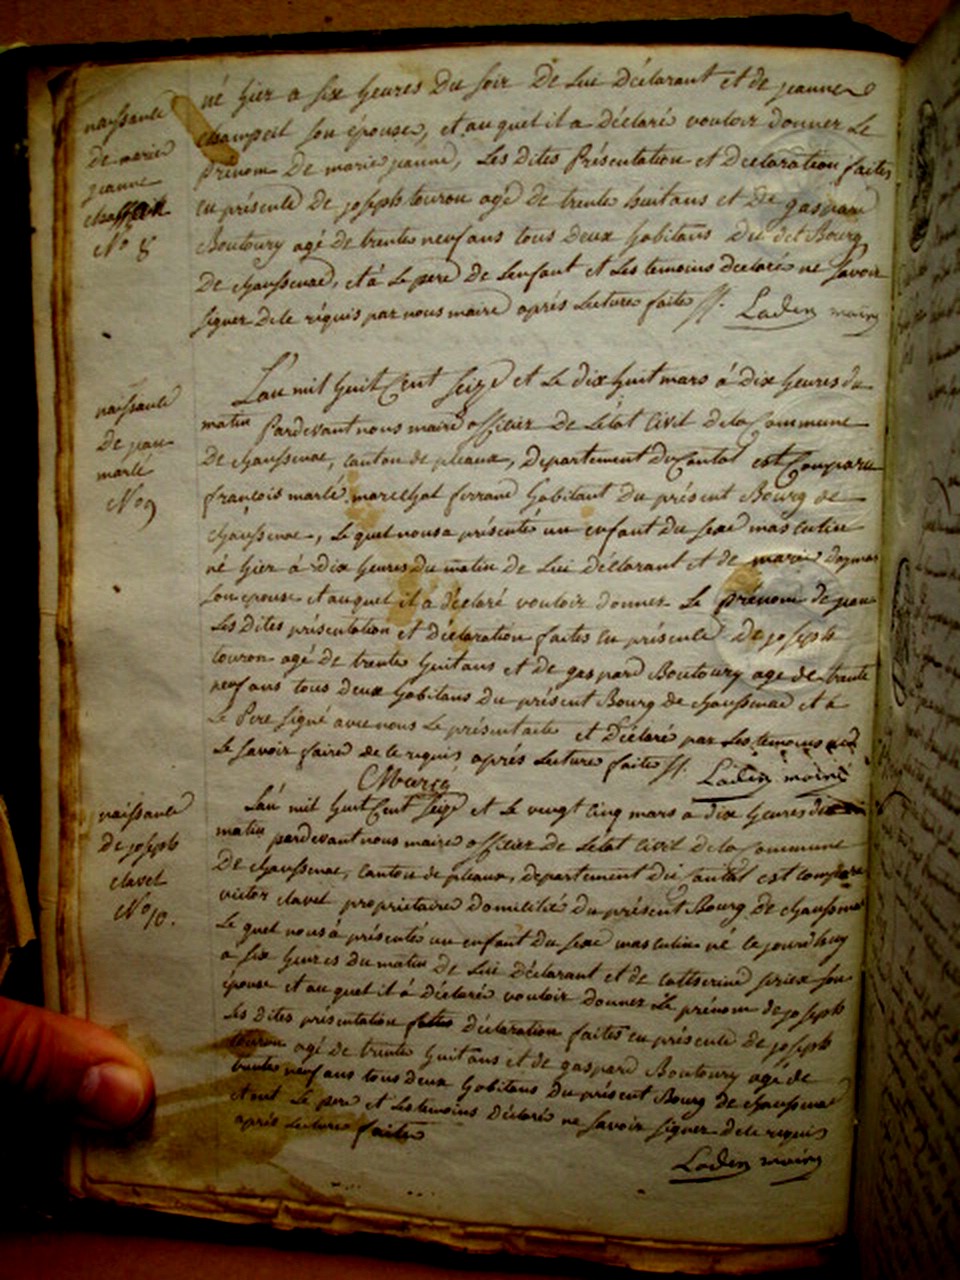 naissance
de marie
jeanne
No 8
né hier a six heures du soir de lui déclarant et de jeanne
champeil son épouse, et au quel il a déclaré vouloir donner le
prénom de marie jeanne, les dites présentation et declaration faites
en présence de joseph touron agé de trente huit ans et de gaspard
Boutoury agé de trente neuf ans tous deux habitans du dit Bourg
de chaussenac, et à le pere de l'enfant et les temoins declaré ne savoir
signer de le réquis par nous maire après lecture faite //. Laden maire
naissance
de jean
marlé
No 9
L'an mil huit Cent seize et le dix huit mars à dix heures du
matin Pardevant nous maire officier de L'état Civil de la Commune
de chaussenac, canton de pleaux, département du Cantal est Comparu
françois marlé marechal ferrand habitant du présent Bourg de
chaussenac, le quel nous a présenté un enfant du sexe masculin
né hier à dix heures du matin de lui déclarant et de marie
son epouse et au quel il a déclaré vouloir donner le prénom de jean
les dites présentation et déclaration faites en présence de joseph
touron agé de trente huit ans et de gaspard Boutoury agé de trente
neuf ans tous deux habitans du présent Bourg de chaussenac et à
le Pere signé avec nous le présent acte et déclaré par les temoins
le savoir faire de le requis après lecture faite //. Laden maire
naissance
de joseph
clavel
No 10.
L'an mil huit Cent seize et le vingt cinq mars a dix heures du
matin pardevant nous maire officier de L'état Civil de la Commune
de chaussenac, canton de pleaux, département du cantal est comparu
victor clavel propriétaire domicilié du présent Bourg de chaussenac
le quel nous a présenté un enfant du sexe masculin né ce jourd'huy
a six heures du matin de lui déclarant et de catherine son
épouse et au quel il à déclaré vouloir donner le prénom de joseph
les dites présentation déclaration faites en présence de joseph
touron agé de trente huit ans et de gaspard Boutoury agé de
trente neuf ans tous deux habitans du présent Bourg de chaussenac
et ont le pere et les temoins déclaré ne savoir signer de le requis
après lecture faite
Laden maire